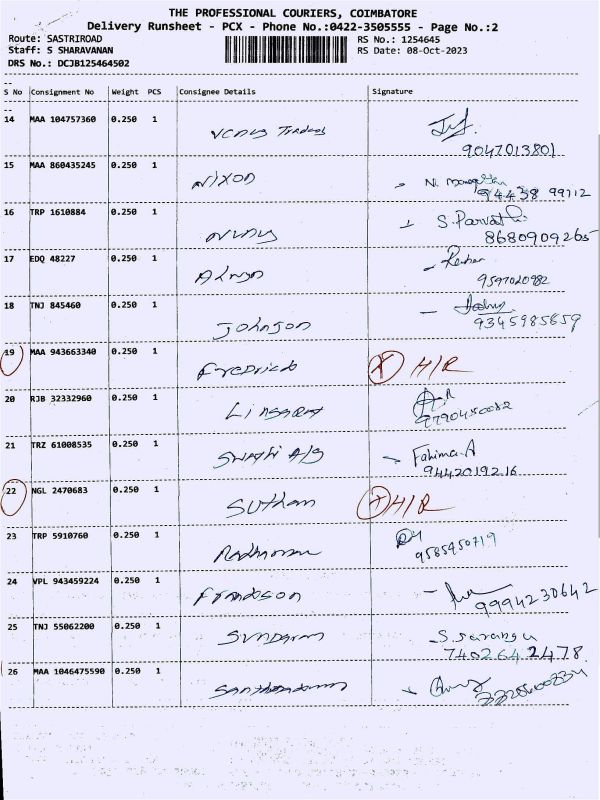 THE PROFESSIONAL COURIERS, COIMBATORE
Delivery Runsheet - PCX - Phone No.:0422-3505555 - Page No.:2
Route: SASTRIROAD RS No.: 1254645
Staff: S SHARAVANAN RS Date: 08-Oct-2023
DRS No.: DCJB125464502
S No Consignment No Weight PCS Consignee Details Signature
14 MAA 104757360 0.250 1
Venus Traders
9047013801
15 MAA 860435245 0.250 1
Nixon N.
94438 99712
16 TRP 1610884 0.250 1
Venus S. Parvathi
8680909265
17 EDQ 48227 0.250 1
Alwyn
9597020982
18 TNJ 845460 0.250 1
Johnson 9345985659
19 MAA 943663340 0.250 1
Fredrick X H/R
20 RJB 32332960 0.250 1
9790450082
21 TRZ 61008535 0.250 1
Swathi A/g Fahima.A
9442019216
22 NGL 2470683 0.250 1
Suthan X H/R
23 TRP 5910760 0.250 1
9585950719
24 VPL 943459224 0.250 1
9994230642
25 TNJ 55062200 0.250 1
Sundaram S.
7402642478
26 MAA 1046475590 0.250 1